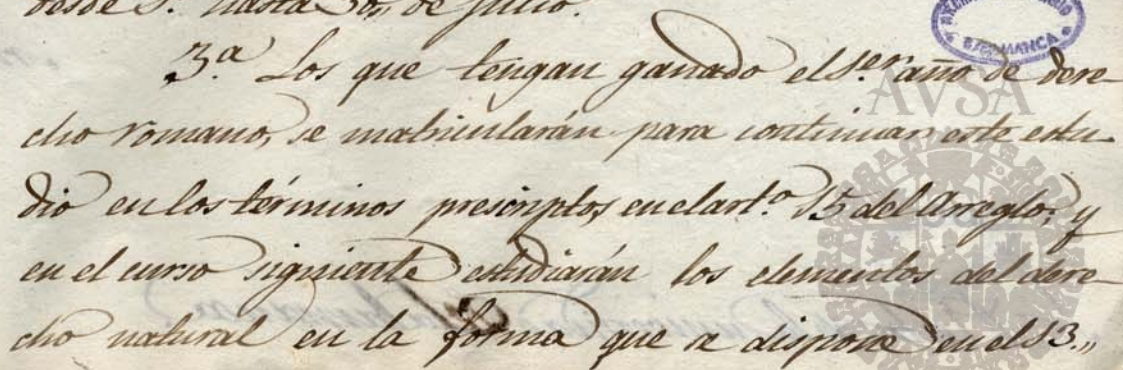 desde 1º. hasta 30,, de Julio.
3.ª Los que tengan ganado el 1.er año de dere-
cho romano, se matricularán para continuar este estu-
dio en los términos prescriptos en el art.º 15 del Arreglo; y
en el curso siguiente estudiarán los elementos del dere-
cho natural en la forma que se dispone en el 13.,,
SALAMANCA
AVSA